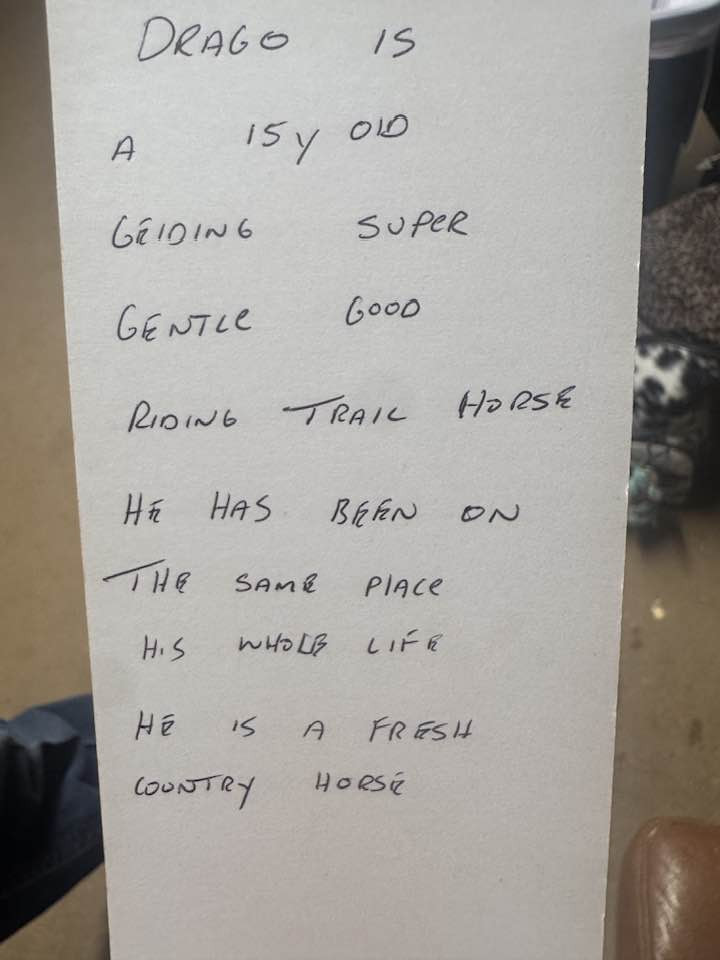 DRAGO IS
A 15y OLD
GELDING SUPER
GENTLE GOOD
RIDING TRAIL HORSE
HE HAS BEEN ON
THE SAME PLACE
HIS WHOLE LIFE
HE IS A FRESH
COUNTRY HORSE